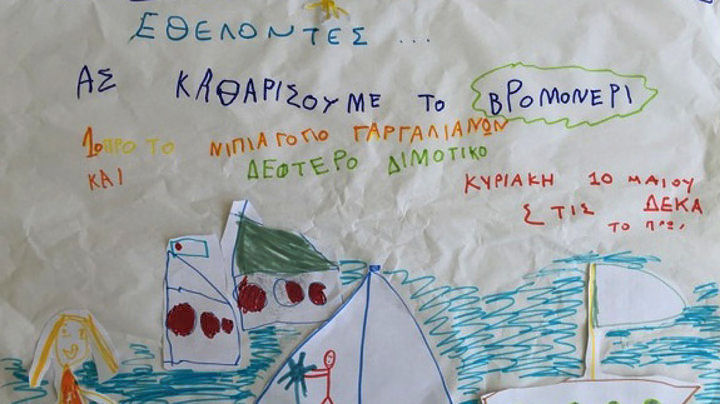 ΕΘΕΛΟΝΤΕΣ ...
ΑΣ ΚΑΘΑΡΙΣΟΥΜΕ ΤΟ ΒΡΟΜΟΝΕΡΙ
1ο ΠΡΟΤΟ ΝΙΠΙΑΓΟΓΟ ΓΑΡΓΑΛΙΑΝΩΝ
ΚΑΙ ΔΕΦΤΕΡΟ ΔΙΜΟΤΙΚΟ
ΚΥΡΙΑΚΗ 10 ΜΑΙΟΥ
ΣΤΙΣ ΔΕΚΑ
ΤΟ